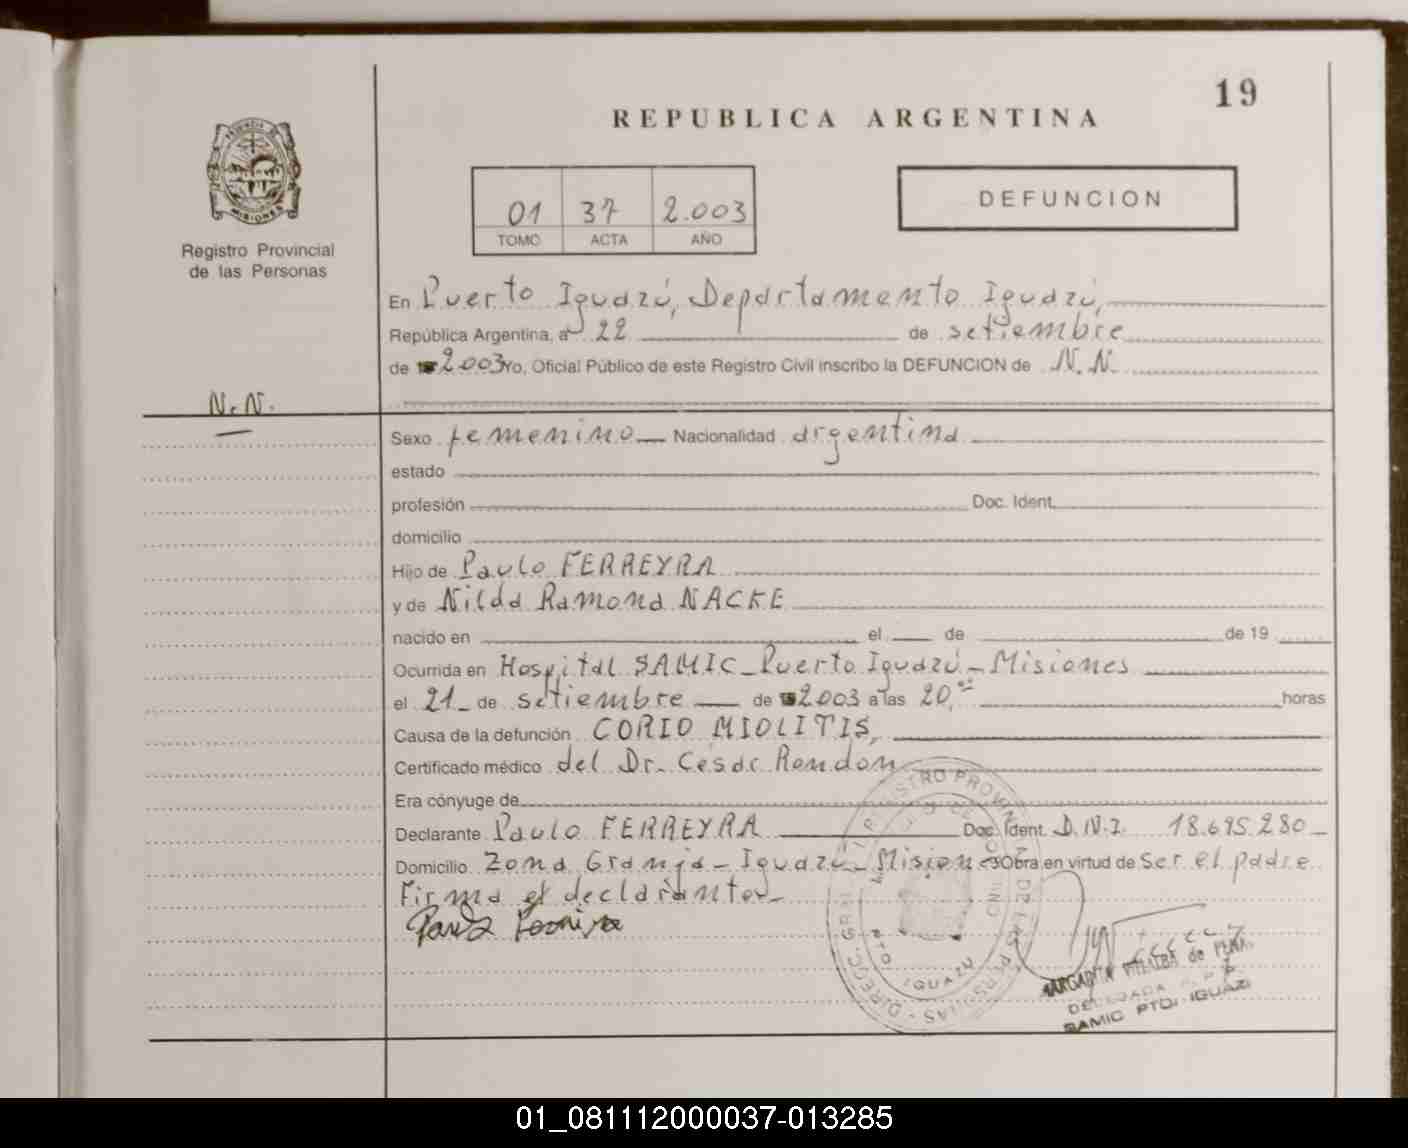 19
REPUBLICA ARGENTINA
PROVINCIA DE
MISIONES
Registro Provincial
de las Personas
01 37 2.003
TOMO ACTA AÑO
DEFUNCION
En Puerto Iguazú, Departamento Iguazú,
República Argentina, a 22 de setiembre
de 2003 Yo, Oficial Público de este Registro Civil inscribo la DEFUNCION de N.N.
N.N.
Sexo femenino Nacionalidad argentina
estado
profesión Doc. Ident.
domicilio
Hijo de Paulo FERREYRA
y de Nilda Ramona NACKE
nacido en el de de 19
Ocurrida en Hospital SAMIC - Puerto Iguazú - Misiones
el 21 - de setiembre de 2003 a las 20,00 horas
Causa de la defunción CORIO MIOLITIS,
Certificado médico del Dr. César Rondon
Era cónyuge de
Declarante Paulo FERREYRA Doc. Ident. D.N.I. 18.695.280
Domicilio Zona Granja - Iguazú - Misiones Obra en virtud de Ser el padre
Firma el declarante
MARGARITA VILLALBA de PEÑA
DELEGADA
SAMIC PTO. IGUAZU
01_081112000037-013285